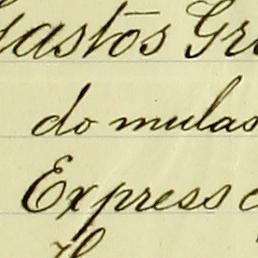 Gastos Gr
do mulas
Express